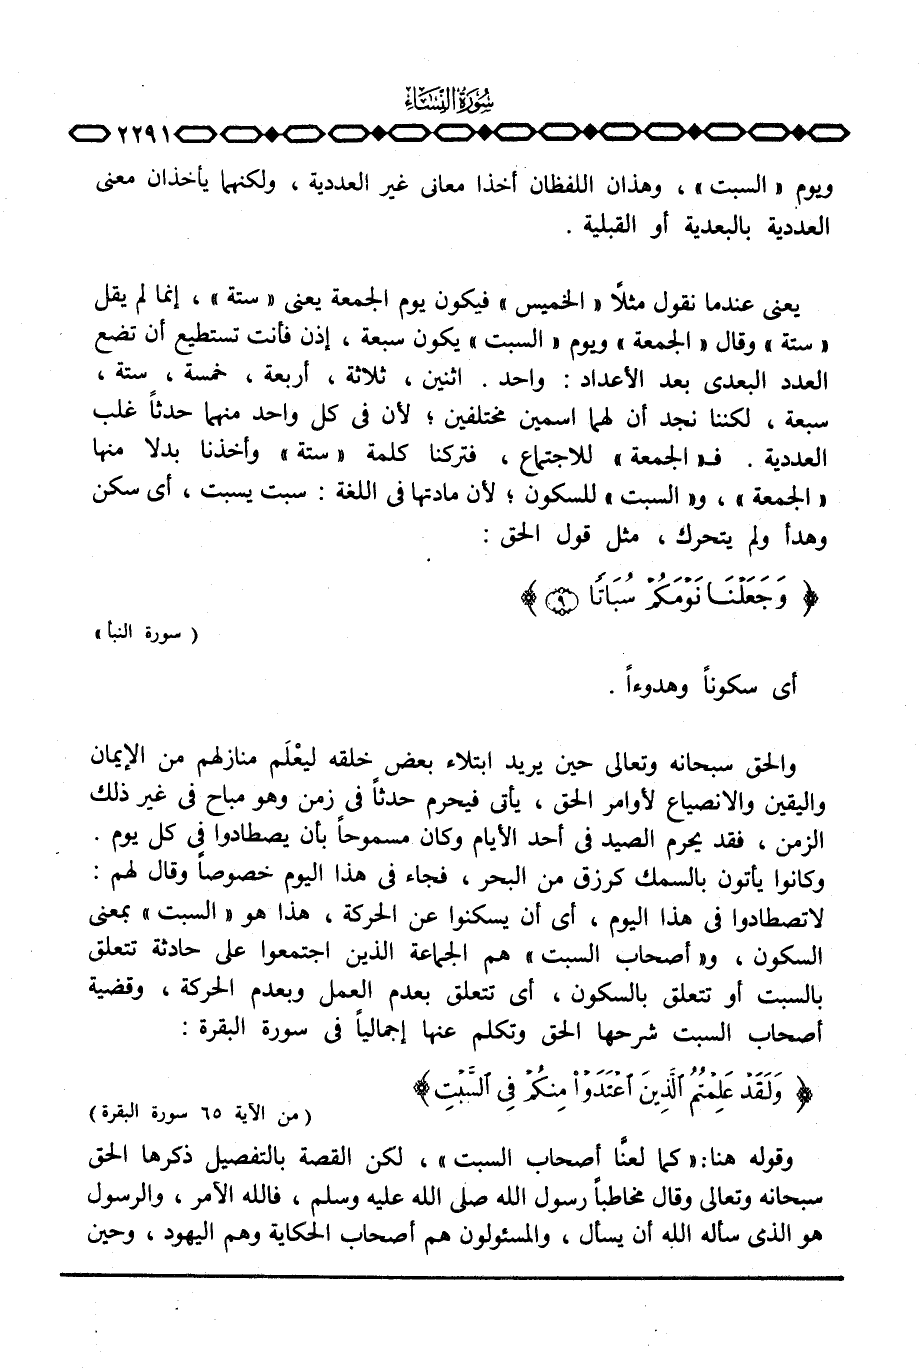 سورة النساء
٢٢٩١
ويوم « السبت » ، وهذان اللفظان أخذا معانى غير العددية ، ولكنهما يأخذان معنى
العددية بالبعدية أو القبلية .
يعنى عندما نقول مثلاً « الخميس » فيكون يوم الجمعة يعنى « ستة » ، إنما لم يقل
« ستة » وقال « الجمعة » ويوم « السبت » يكون سبعة ، إذن فأنت تستطيع أن تضع
العدد البعدى بعد الأعداد : واحد . اثنين ، ثلاثة ، أربعة ، خمسة ، ستة ،
سبعة ، لكننا نجد أن لهما اسمين مختلفين ؛ لأن فى كل واحد منهما حدثاً غلب
العددية . فـ« الجمعة » للاجتماع ، فتركنا كلمة « ستة » وأخذنا بدلا منها
« الجمعة » ، و« السبت » للسكون ؛ لأن مادتها فى اللغة : سبت يسبت ، أى سكن
وهدأ ولم يتحرك ، مثل قول الحق :
﴿ وَجَعَلْنَا نَوْمَكُمْ سُبَاتًا ۝٩ ﴾
( سورة النبأ )
أى سكوناً وهدوءاً .
والحق سبحانه وتعالى حين يريد ابتلاء بعض خلقه ليعْلَم منازلهم من الإيمان
واليقين والانصياع لأوامر الحق ، يأتى فيحرم حدثاً فى زمن وهو مباح فى غير ذلك
الزمن ، فقد يحرم الصيد فى أحد الأيام وكان مسموحاً بأن يصطادوا فى كل يوم .
وكانوا يأتون بالسمك كرزق من البحر ، فجاء فى هذا اليوم خصوصاً وقال لهم :
لاتصطادوا فى هذا اليوم ، أى أن يسكنوا عن الحركة ، هذا هو « السبت » بمعنى
السكون ، و« أصحاب السبت » هم الجماعة الذين اجتمعوا على حادثة تتعلق
بالسبت أو تتعلق بالسكون ، أى تتعلق بعدم العمل وبعدم الحركة ، وقضية
أصحاب السبت شرحها الحق وتكلم عنها إجمالياً فى سورة البقرة :
﴿ وَلَقَدْ عَلِمْتُمُ الَّذِينَ اعْتَدَوْا مِنكُمْ فِى السَّبْتِ ﴾
( من الآية ٦٥ سورة البقرة )
وقوله هنا:« كما لعنَّا أصحاب السبت » ، لكن القصة بالتفصيل ذكرها الحق
سبحانه وتعالى وقال مخاطباً رسول الله صلى الله عليه وسلم ، فالله الآمر ، والرسول
هو الذى سأله الله أن يسأل ، والمسئولون هم أصحاب الحكاية وهم اليهود ، وحين